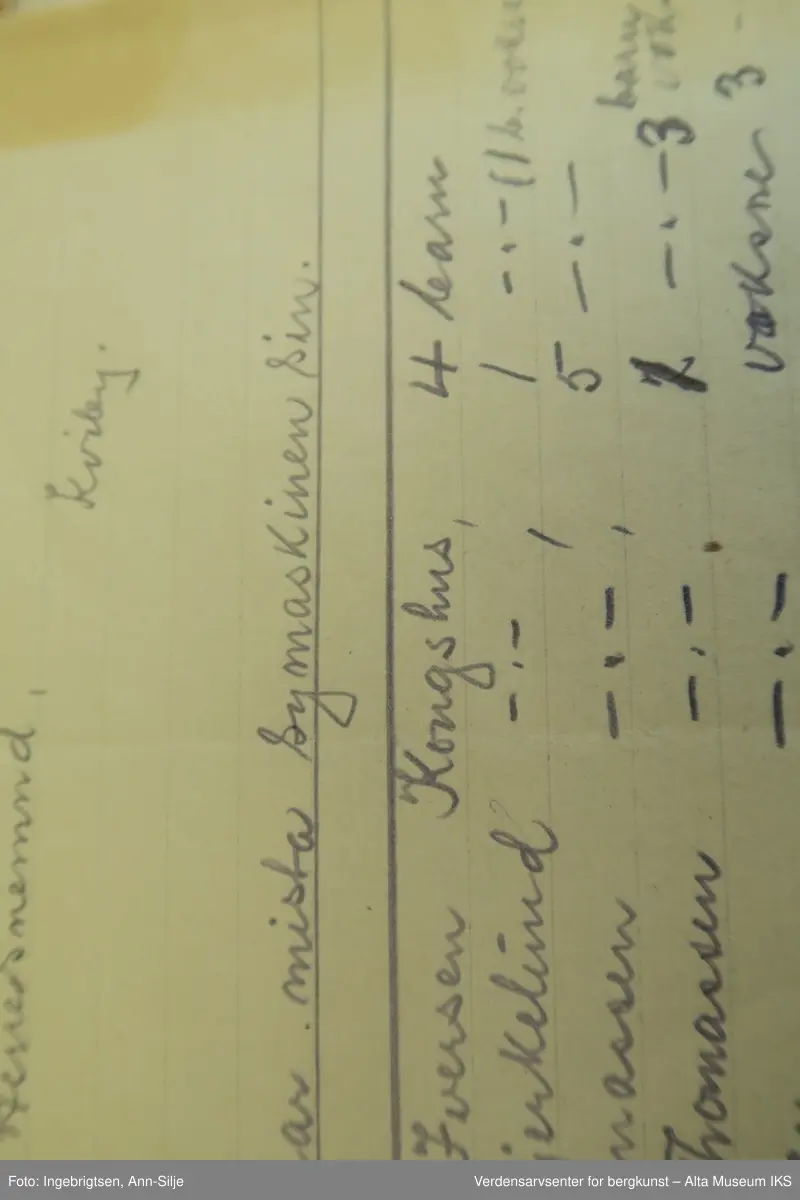 Kviby.
ar mista symaskinen sin.
Iversen Kongshus, 4 barn
jerkelund -"- , 1 -"- (1 b.
massen -"- , 5 -"-
Thomassen -"- -"- 3 barn
-"- voksne 3 -
Foto: Ingebrigtsen, Ann-Silje
Verdensarvsenter for bergkunst – Alta Museum IKS